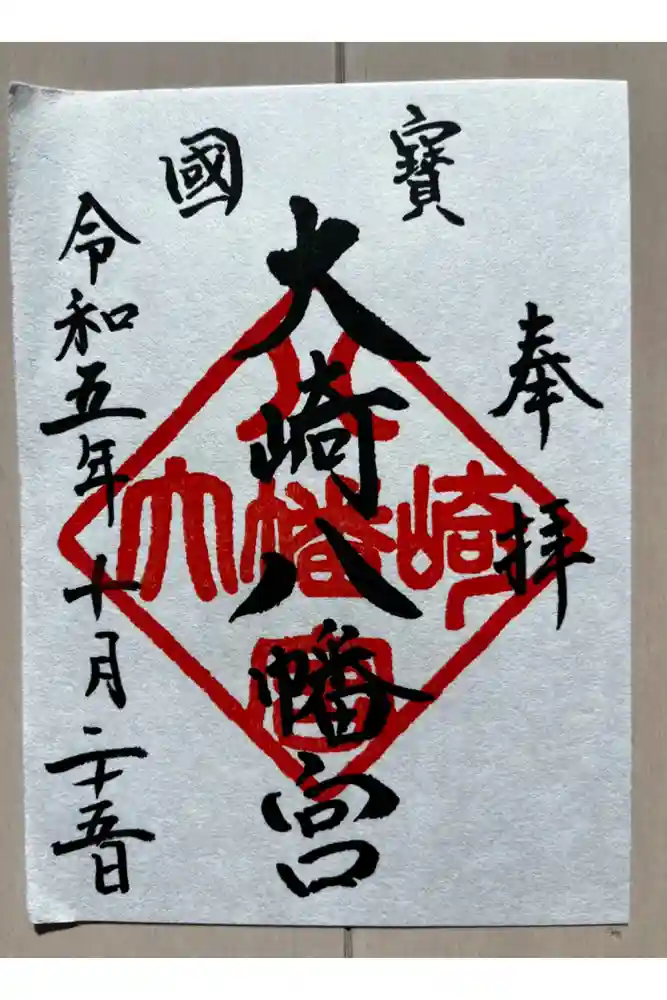 國寶
奉拝
大崎八幡宮
令和五年十月二十五日
大崎八幡宮